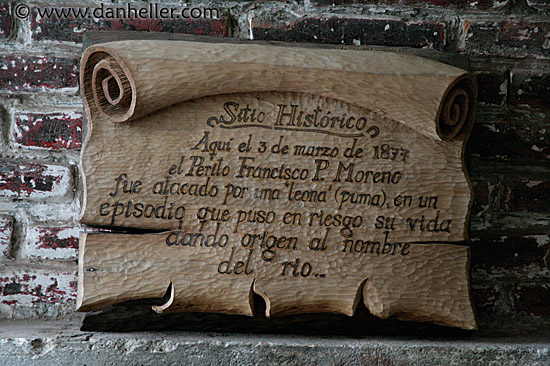 © www.danheller.com
Sitio Histórico
Aquí el 3 de marzo de 1877
el Perito Francisco P. Moreno
fue atacado por una "leona" (puma), en un
episodio que puso en riesgo su vida
dando origen al nombre
del rio...